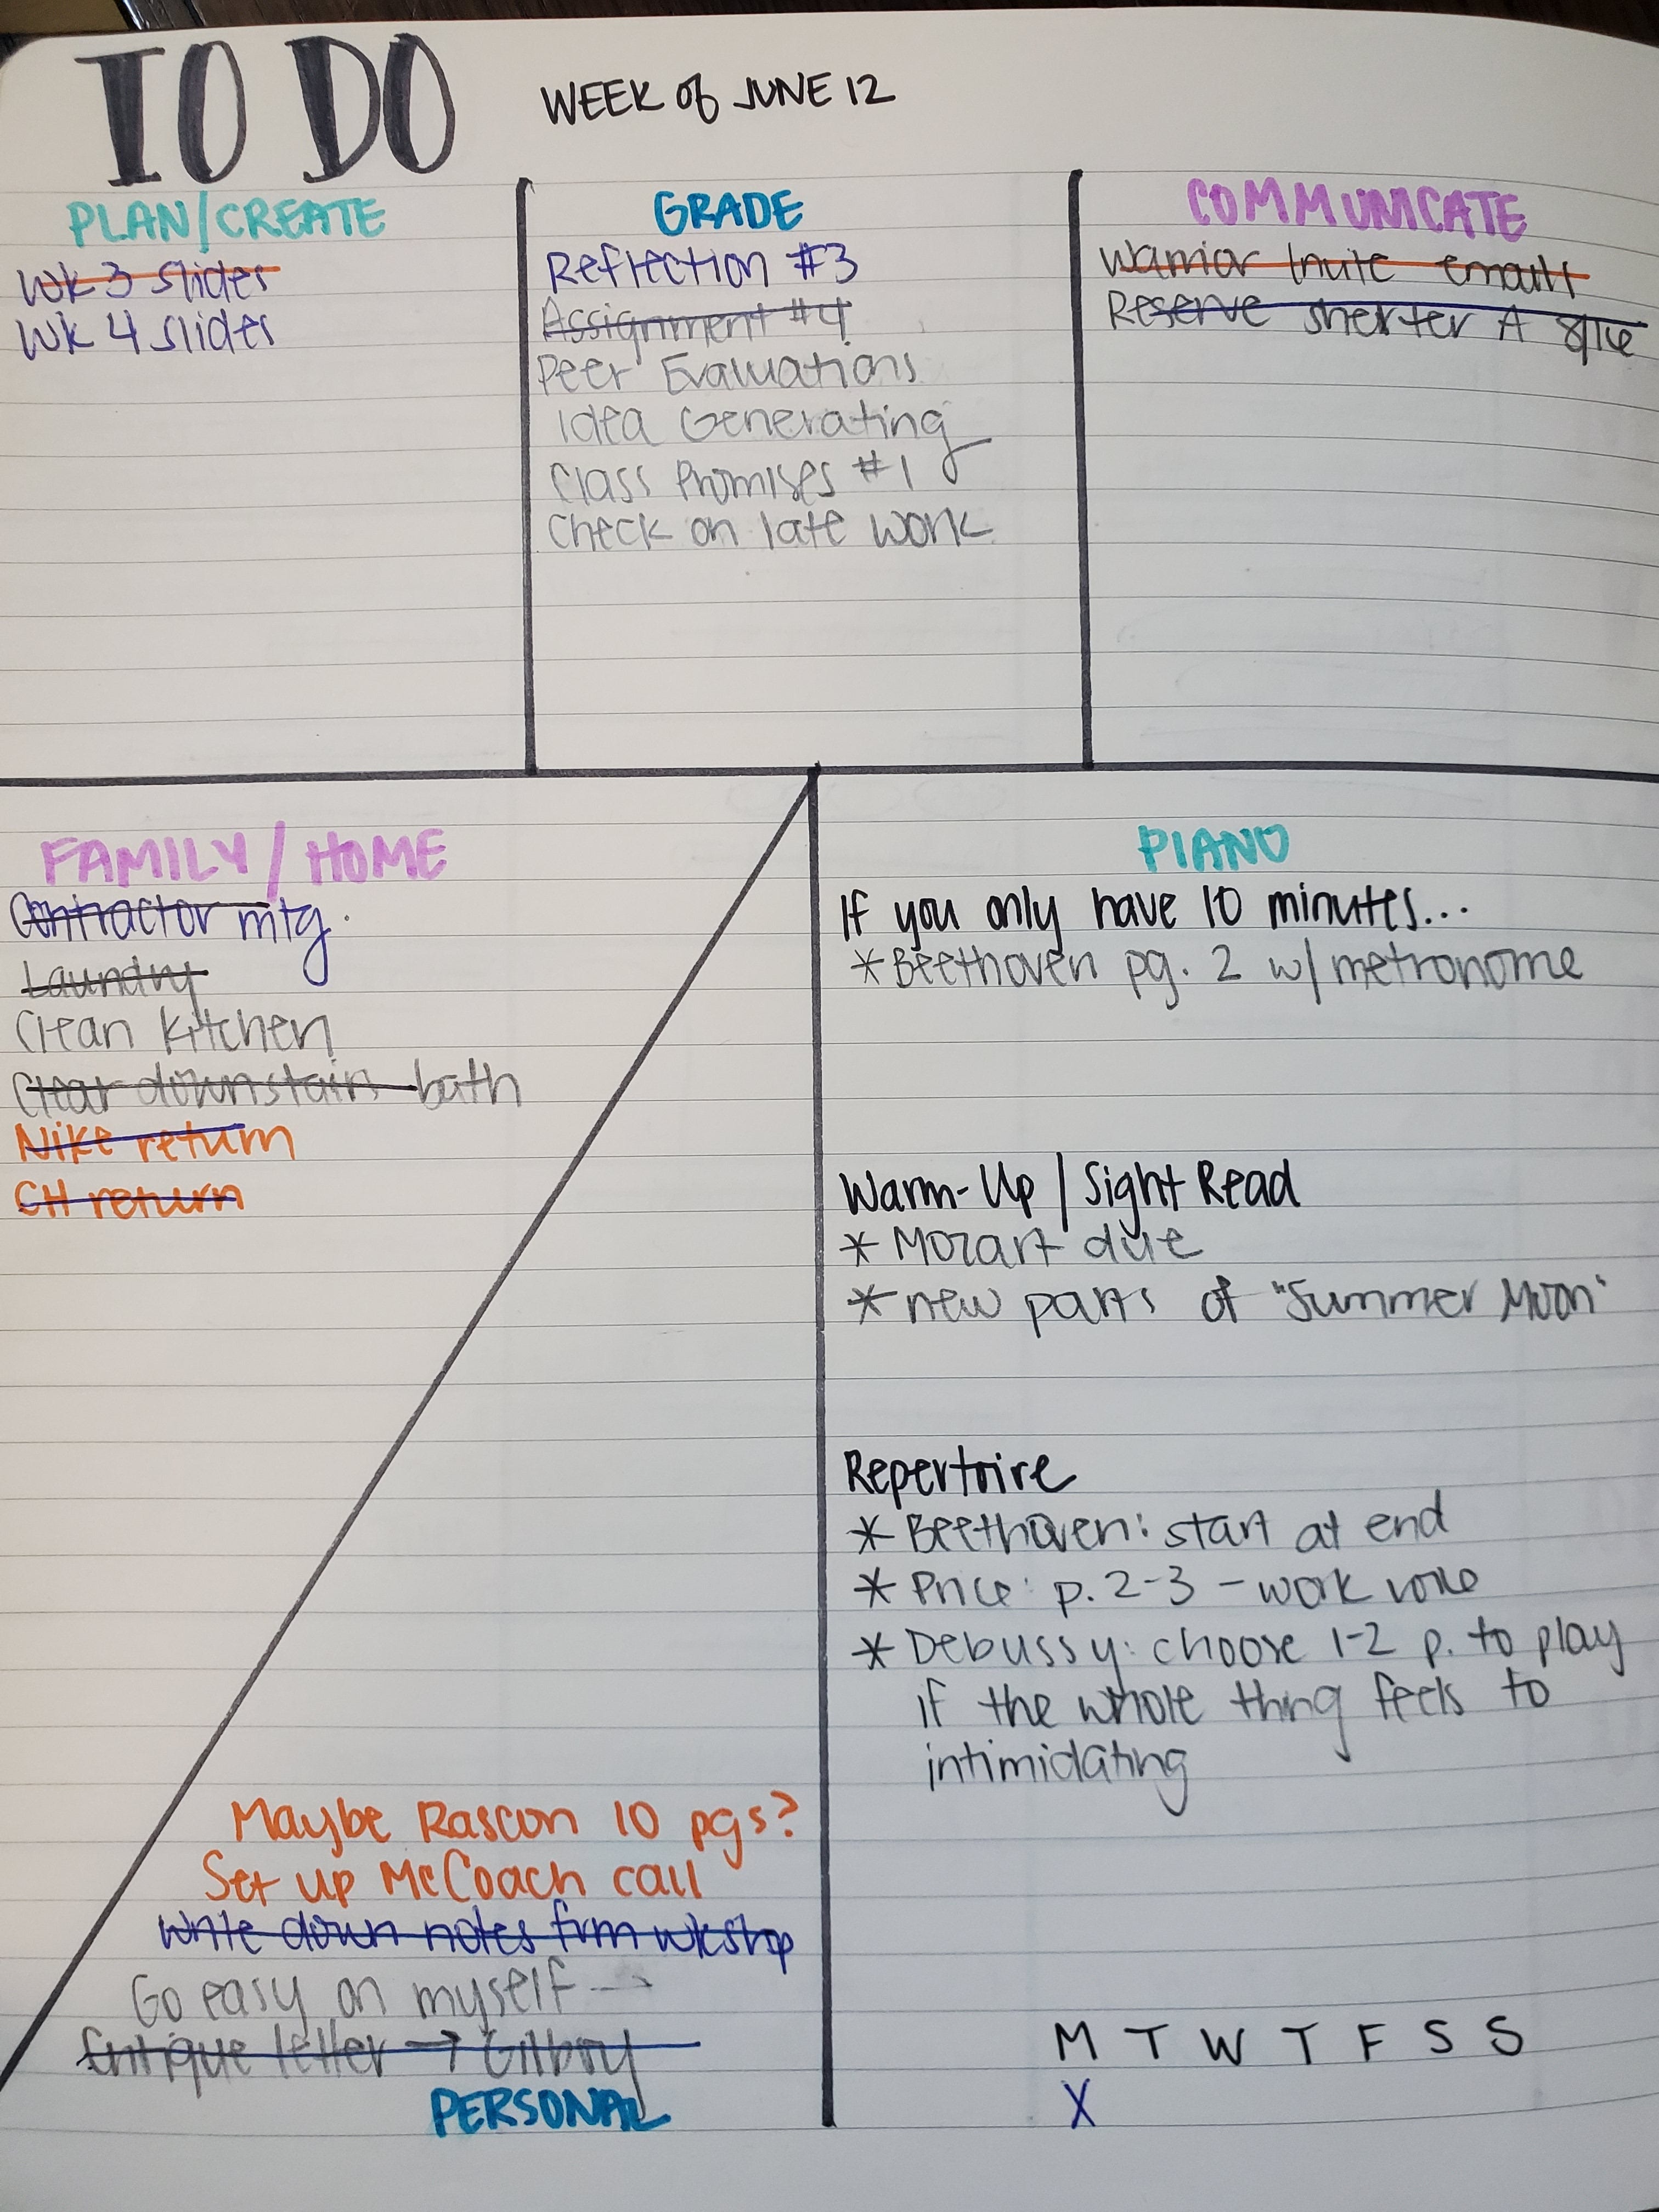 TO DO
WEEK of JUNE 12
PLAN/CREATE
Wk 3 slides
Wk 4 slides
GRADE
Reflection #3
Assignment #4
Peer Evaluations
Idea Generating
Class Promises #1
Check on late work
COMMUNICATE
Warrior Invite email
Reserve shelter A 8/16
FAMILY/HOME
Contractor mtg.
Laundry
Clean kitchen
Clear downstairs bath
Nike return
CH return
Maybe Rascon 10 pgs?
Set up McCoach call
Write down notes from wkshp
Go easy on myself
Critique letter → Gilboy
PERSONAL
PIANO
If you only have 10 minutes...
* Beethoven pg. 2 w/ metronome
Warm-Up / Sight Read
* Mozart due
* new parts of "Summer Moon"
Repertoire
* Beethoven: start at end
* Price: p. 2-3 - work
* Debussy: choose 1-2 p. to play
if the whole thing feels to
intimidating
M T W T F S S
X